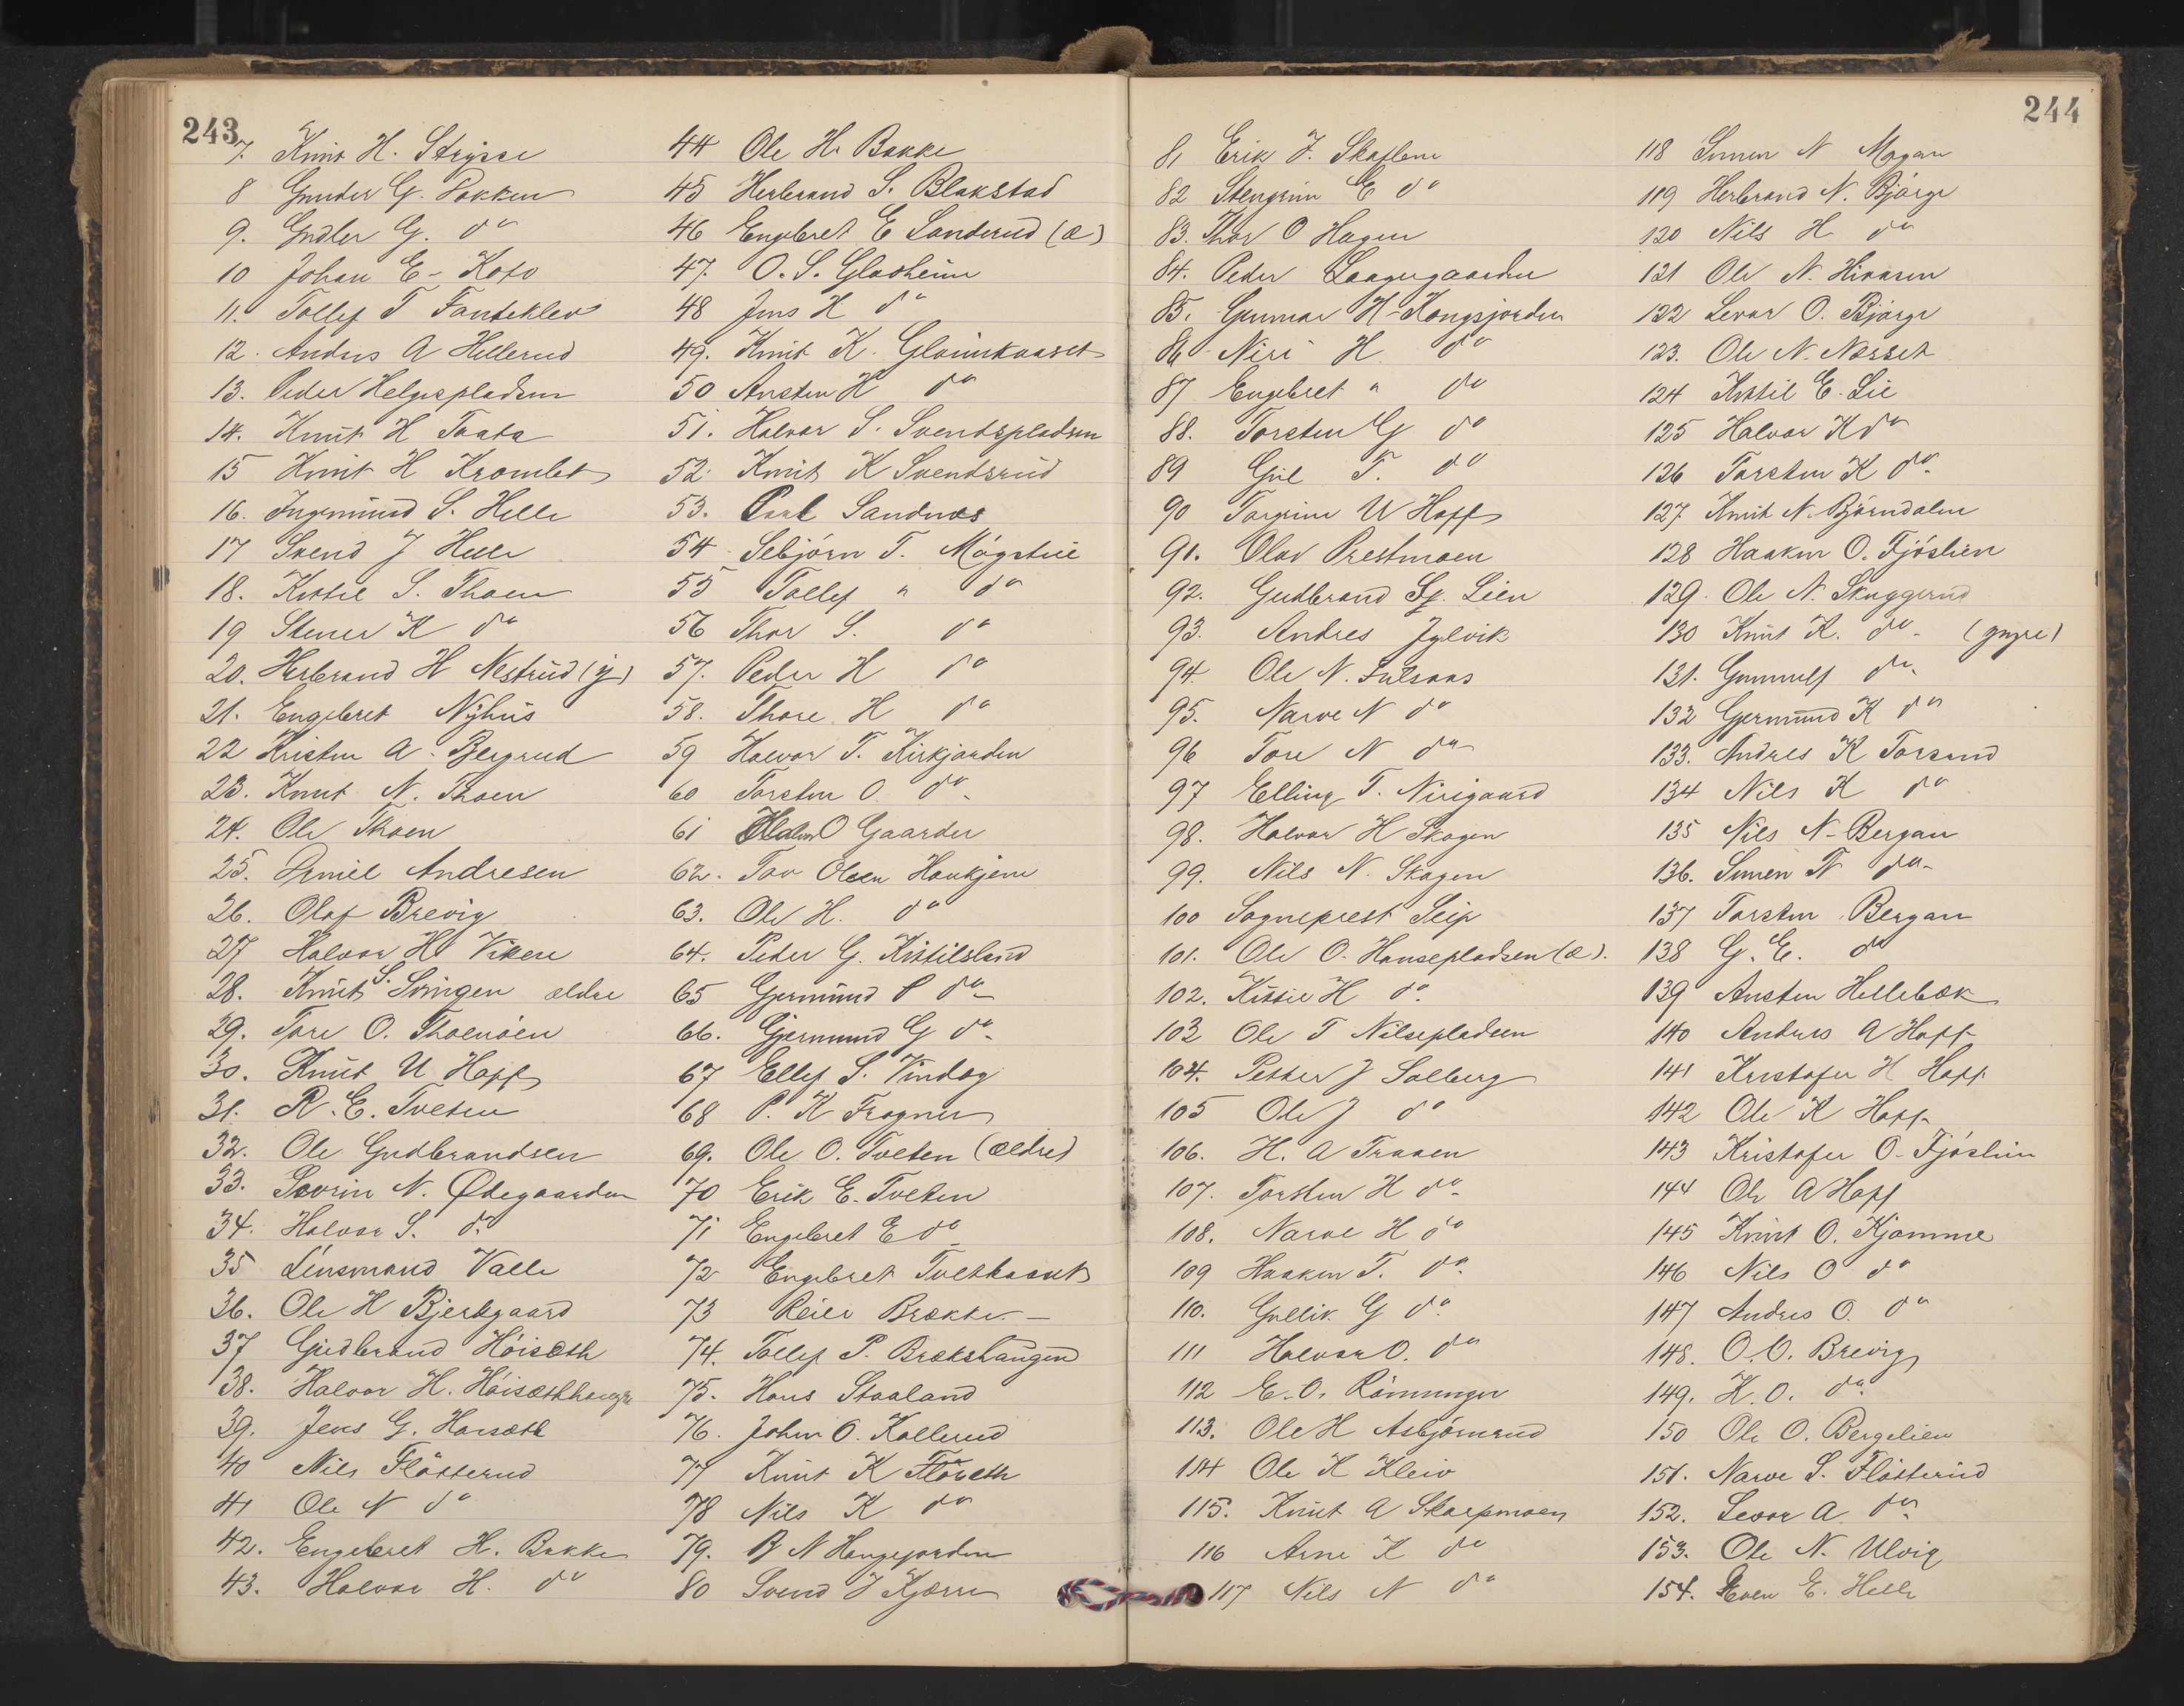 243
7. Knut H. Strysse
8 Gunder G. Pokken
9. Gudler G. do
10 Johan E. Koto
11. Tollef T Fanteklev
12. Andres A Hellerud
13. Peder Helgespladsen
14. Knut H Taata
15 Knut H Kromlet
16. Ingemund S. Helle
17 Svend J Helle
18. Kittil S. Thoen
19 Stener K do
20. Herbrand H Nestrud (y)
21. Engebret Nyhus
22 Kristen A. Bergrud
23. Knut N. Thoen
24. Ole Thoen
25. Emil Andresen
26. Olaf Brevig
27 Halvor H. Vikere
28. Knut S. Svingen ældre
29. Tore O. Thoenøen
30. Knut U Hoff
31. R. E. Tveten
32. Ole Gudbrandsen
33. Sevrin N. Ødegaarden
34. Halvor S. do
35 Lensmand Valle
36. Ole H Bjerkgaard
37 Gudbrand Høisæth
38. Halvor H. Høisæthhaugen
39. Jens G. Høisæth
40 Nils Fløtterud
41 Ole N do
42. Engebret H. Bakke
43. Halvor H. do
44 Ole H. Bakke
45 Herbrand S. Blakstad
46 Engebret E Sanderud (æ)
47. O. S. Gladheim
48 Jens H do
49. Knut K. Gloimkaaset
50 Ansten H do
51. Halvor S. Svendspladsen
52. Knut K Svendsrud
53. Carl Sandnæs
54 Sebjørn T. Møgstue
55 Tollef " do
56 Thor S. do
57. Peder H do
58. Thore H do
59 Halvor T. Kirkjorden
60 Torsten O. do
61 Halvor O Gaarder
62. Tov Olsen Haukjem
63. Ole H. do
64. Peder G. Kittilsland
65 Gjermund P do
66. Gjermund G do
67 Ellef S. Vindeg
68 P. K Frogner
69. Ole O. Tveten (ældre)
70 Erik E. Tveten
71 Engebret E do
72 Engebret Tvethaant
73 Reier Brække
74. Tollef P. Brækshaugen
75. Hans Staaland
76. John O. Kollerud
77 Knut K Fløseth
78 Nils K do
79. B N Haugejorden
80 Svend J Kjærre
244
81 Erik J. Skaflem
82 Stengrim E do
83. Thor O Hagen
84. Peder Laagegaarden
85. Gunnar H. Kongsjorden
86 Niri H do
87 Engebret " do
88. Torsten G do
89 Gul T. do
90 Torgrim U Hoff
91. Olav Prestmoen
92. Gudbrand Sj. Lien
93. Andres Jylvik
94 Ole N. Fulsaas
95. Narve N do
96 Tore N do
97 Elling T. Nirigaard
98. Halvor H Skogen
99. Nils N. Skogen
100 Sogneprest Seip
101. Ole O. Hansepladsen (æ).
102. Kittil H do.
103 Ole T Nilsepladsen
104. Petter J Solberg
105 Ole J do
106. H. A Traaen
107. Torsten H do
108. Narve H do
109 Haaken T. do
110. Gullik G do
111 Halvor O. do
112 E. O. Rämunger
113. Ole H Asbjørnrud
114 Ole K Kleiv
115. Knut A Skarpmoen
116 Arne K do
117 Nils N do
118 Simen N Mogan
119 Herbrand N. Bjørge
120 Nils H do
121 Ole N. Hinnsen
122 Levor O. Bjørge
123. Ole N. Næsset
124 Kittil E. Lie
125 Halvor K do
126 Torsten K do
127. Knut N. Bjørndalen
128 Haaken O. Fjøslien
129. Ole N. Skuggerud
130 Knut K. do (yngre)
131. Gunnulf do
132 Gjermund K do
133. Andres K Torsrud
134 Nils K do
135 Nils N. Bergan
136. Simen N do
137 Torsten Bergan
138 G. E. do
139 Ansten Hellebæk
140 Andres A Hoff
141 Kristofer H Hoff
142 Ole K Hoff
143 Kristofer O. Fjøslien
144 Ole A Hoff
145 Knut O. Kjømme
146 Nils O do
147 Andres O. do
148. O. O. Brevig
149. K. O. do
150 Ole O. Bergelien
151. Narve S. Fløtterud
152. Levor A. do
153. Ole N. Ulvig
154. Even E. Helle